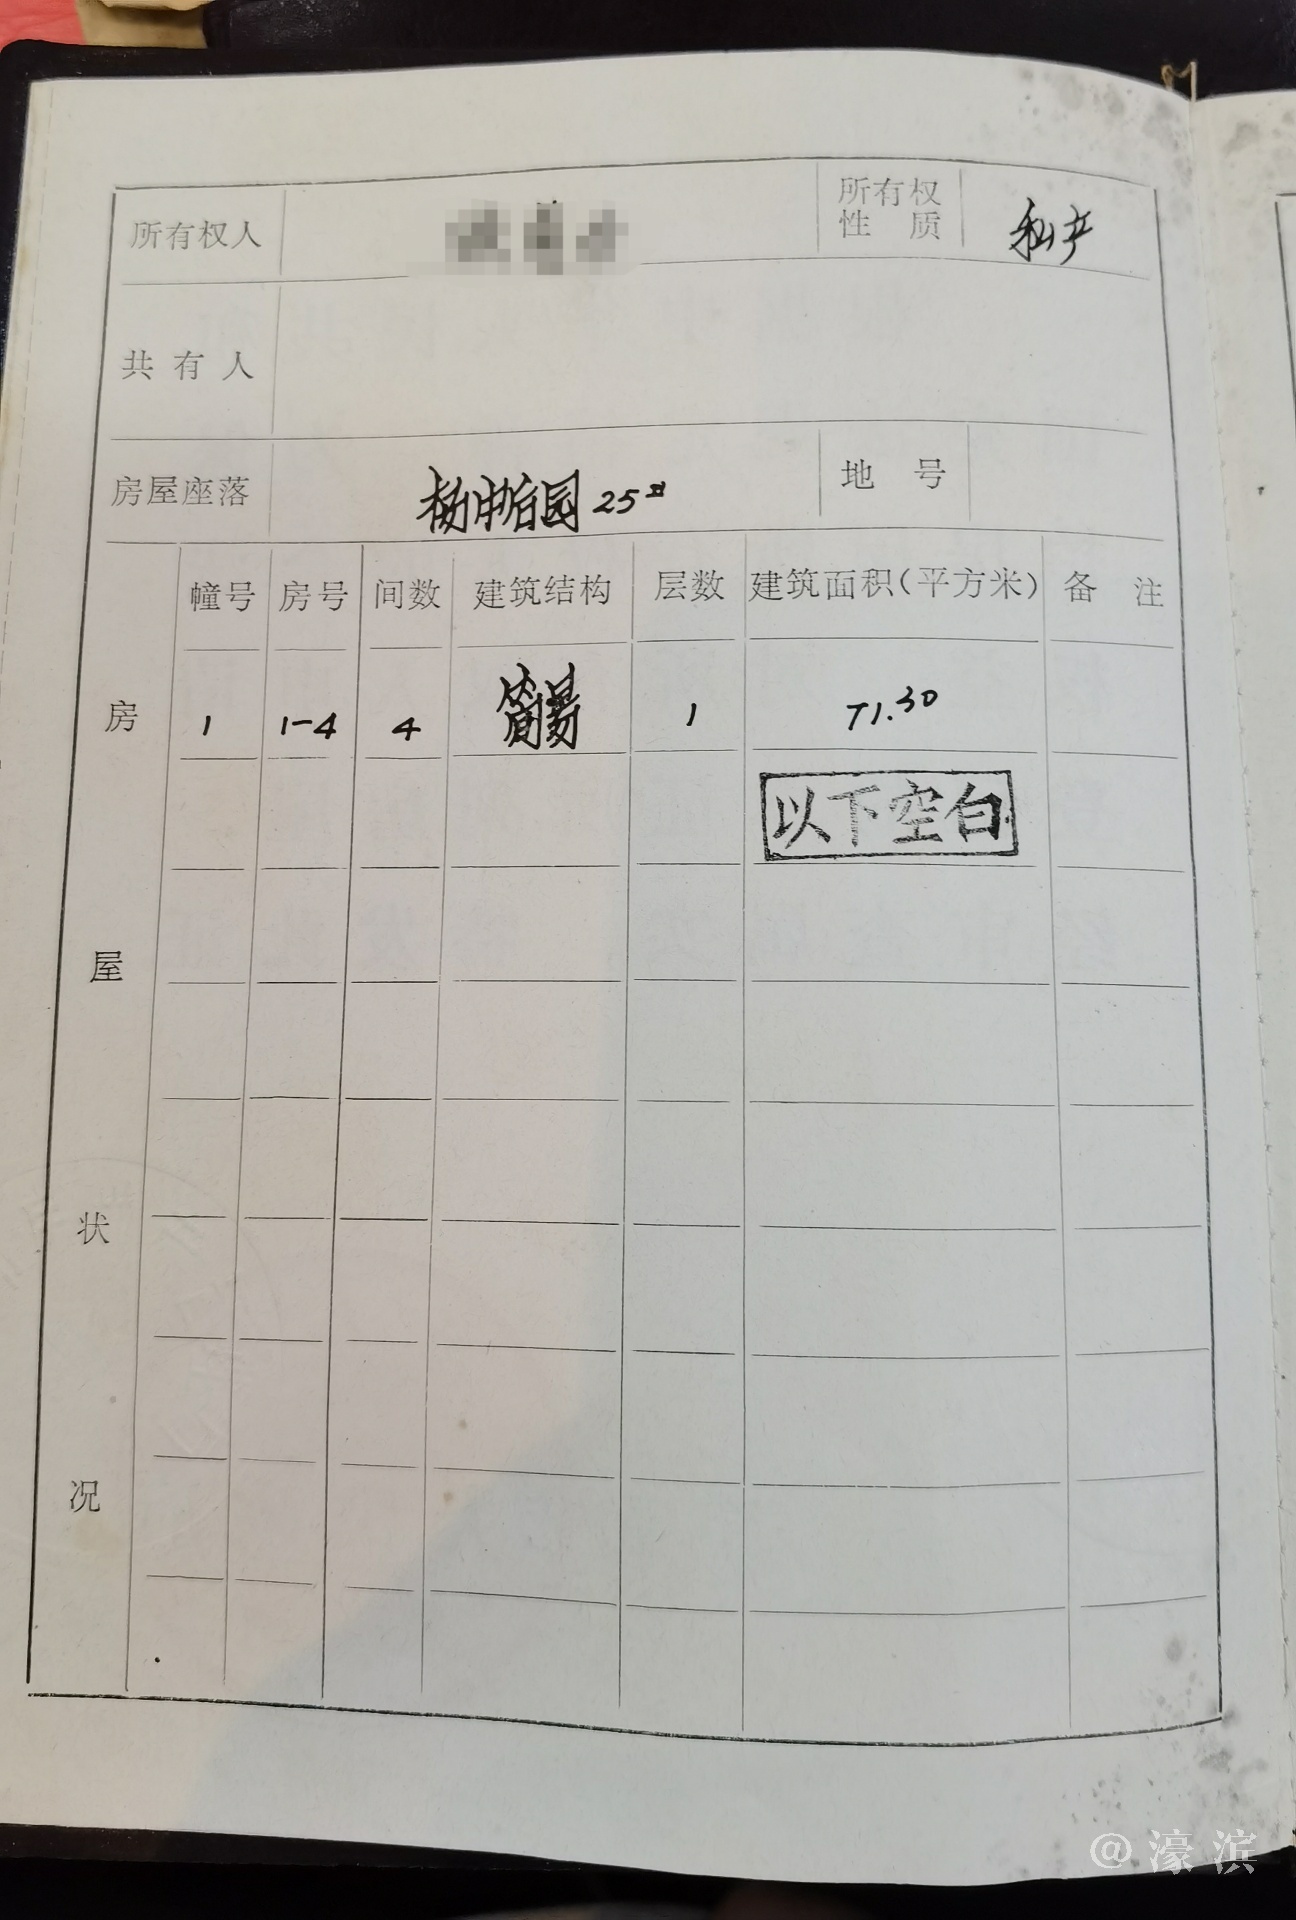 所有权人
所有权
性 质
私产
共有人
房屋座落
25
地 号
房屋状况
幢号 房号 间数 建筑结构 层数 建筑面积(平方米) 备 注
1 1-4 4 简易 1 71.30
以下空白
@濠滨